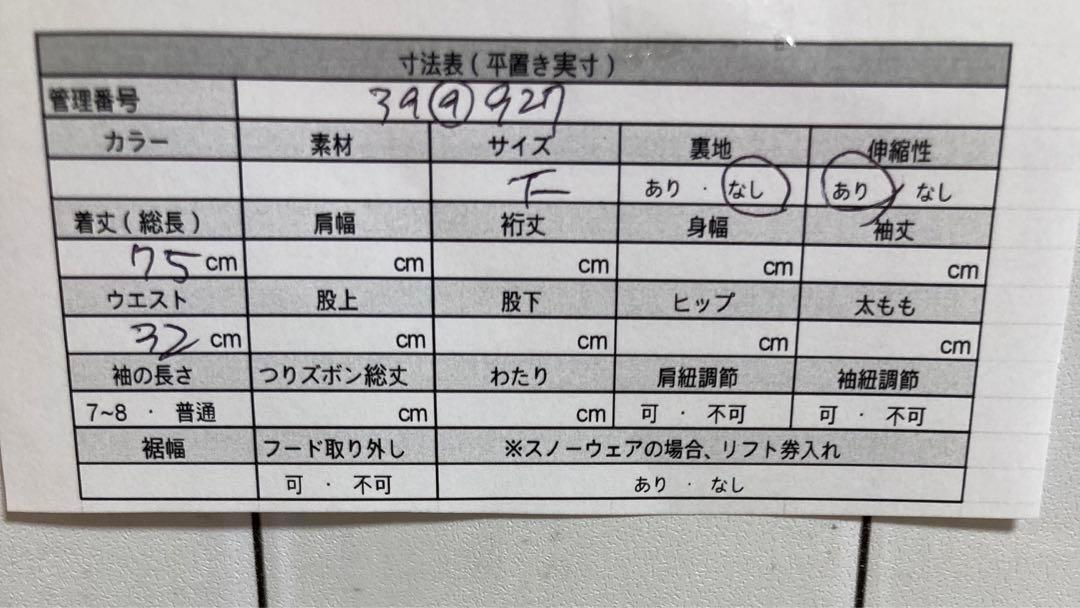 寸法表(平置き実寸)
管理番号 39 9 927
カラー 素材 サイズ 裏地 伸縮性
F あり ・ なし あり ・ なし
着丈(総長) 肩幅 裄丈 身幅 袖丈
75 cm cm cm cm cm
ウエスト 股上 股下 ヒップ 太もも
32 cm cm cm cm cm
袖の長さ つりズボン総丈 わたり 肩紐調節 袖紐調節
7~8 ・ 普通 cm cm 可 ・ 不可 可 ・ 不可
裾幅 フード取り外し ※スノーウェアの場合、リフト券入れ
可 ・ 不可 あり ・ なし